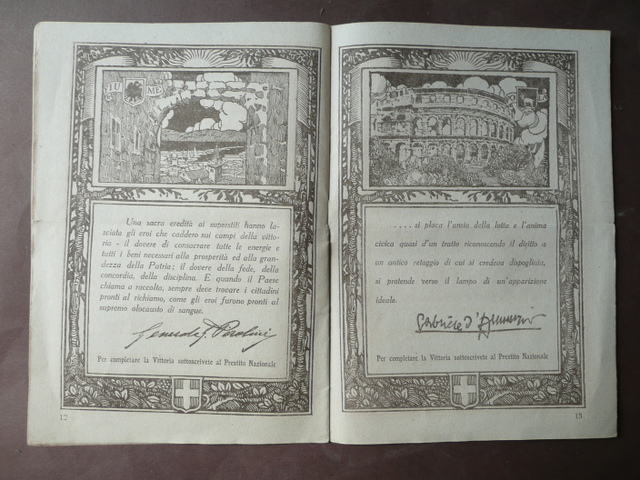 FIUME
Una sacra eredità ai superstiti hanno la-
sciata gli eroi che caddero sui campi della vitto-
ria - il dovere di consacrare tutte le energie e
tutti i beni necessari alla prosperità ed alla gran-
dezza della Patria; il dovere della fede, della
concordia, della disciplina. E quando il Paese
chiama a raccolta, sempre deve trovare i cittadini
pronti al richiamo, come gli eroi furono pronti al
supremo olocausto di sangue.
Generale
Per completare la Vittoria sottoscrivete al Prestito Nazionale
12
.... si placa l'ansia della lotta e l'anima
civica quasi d'un tratto riconoscendo il diritto a
un antico retaggio di cui si credeva dispogliata,
si protende verso il lampo di un'apparizione
ideale.
Gabriele d'Annunzio
Per completare la Vittoria sottoscrivete al Prestito Nazionale
13